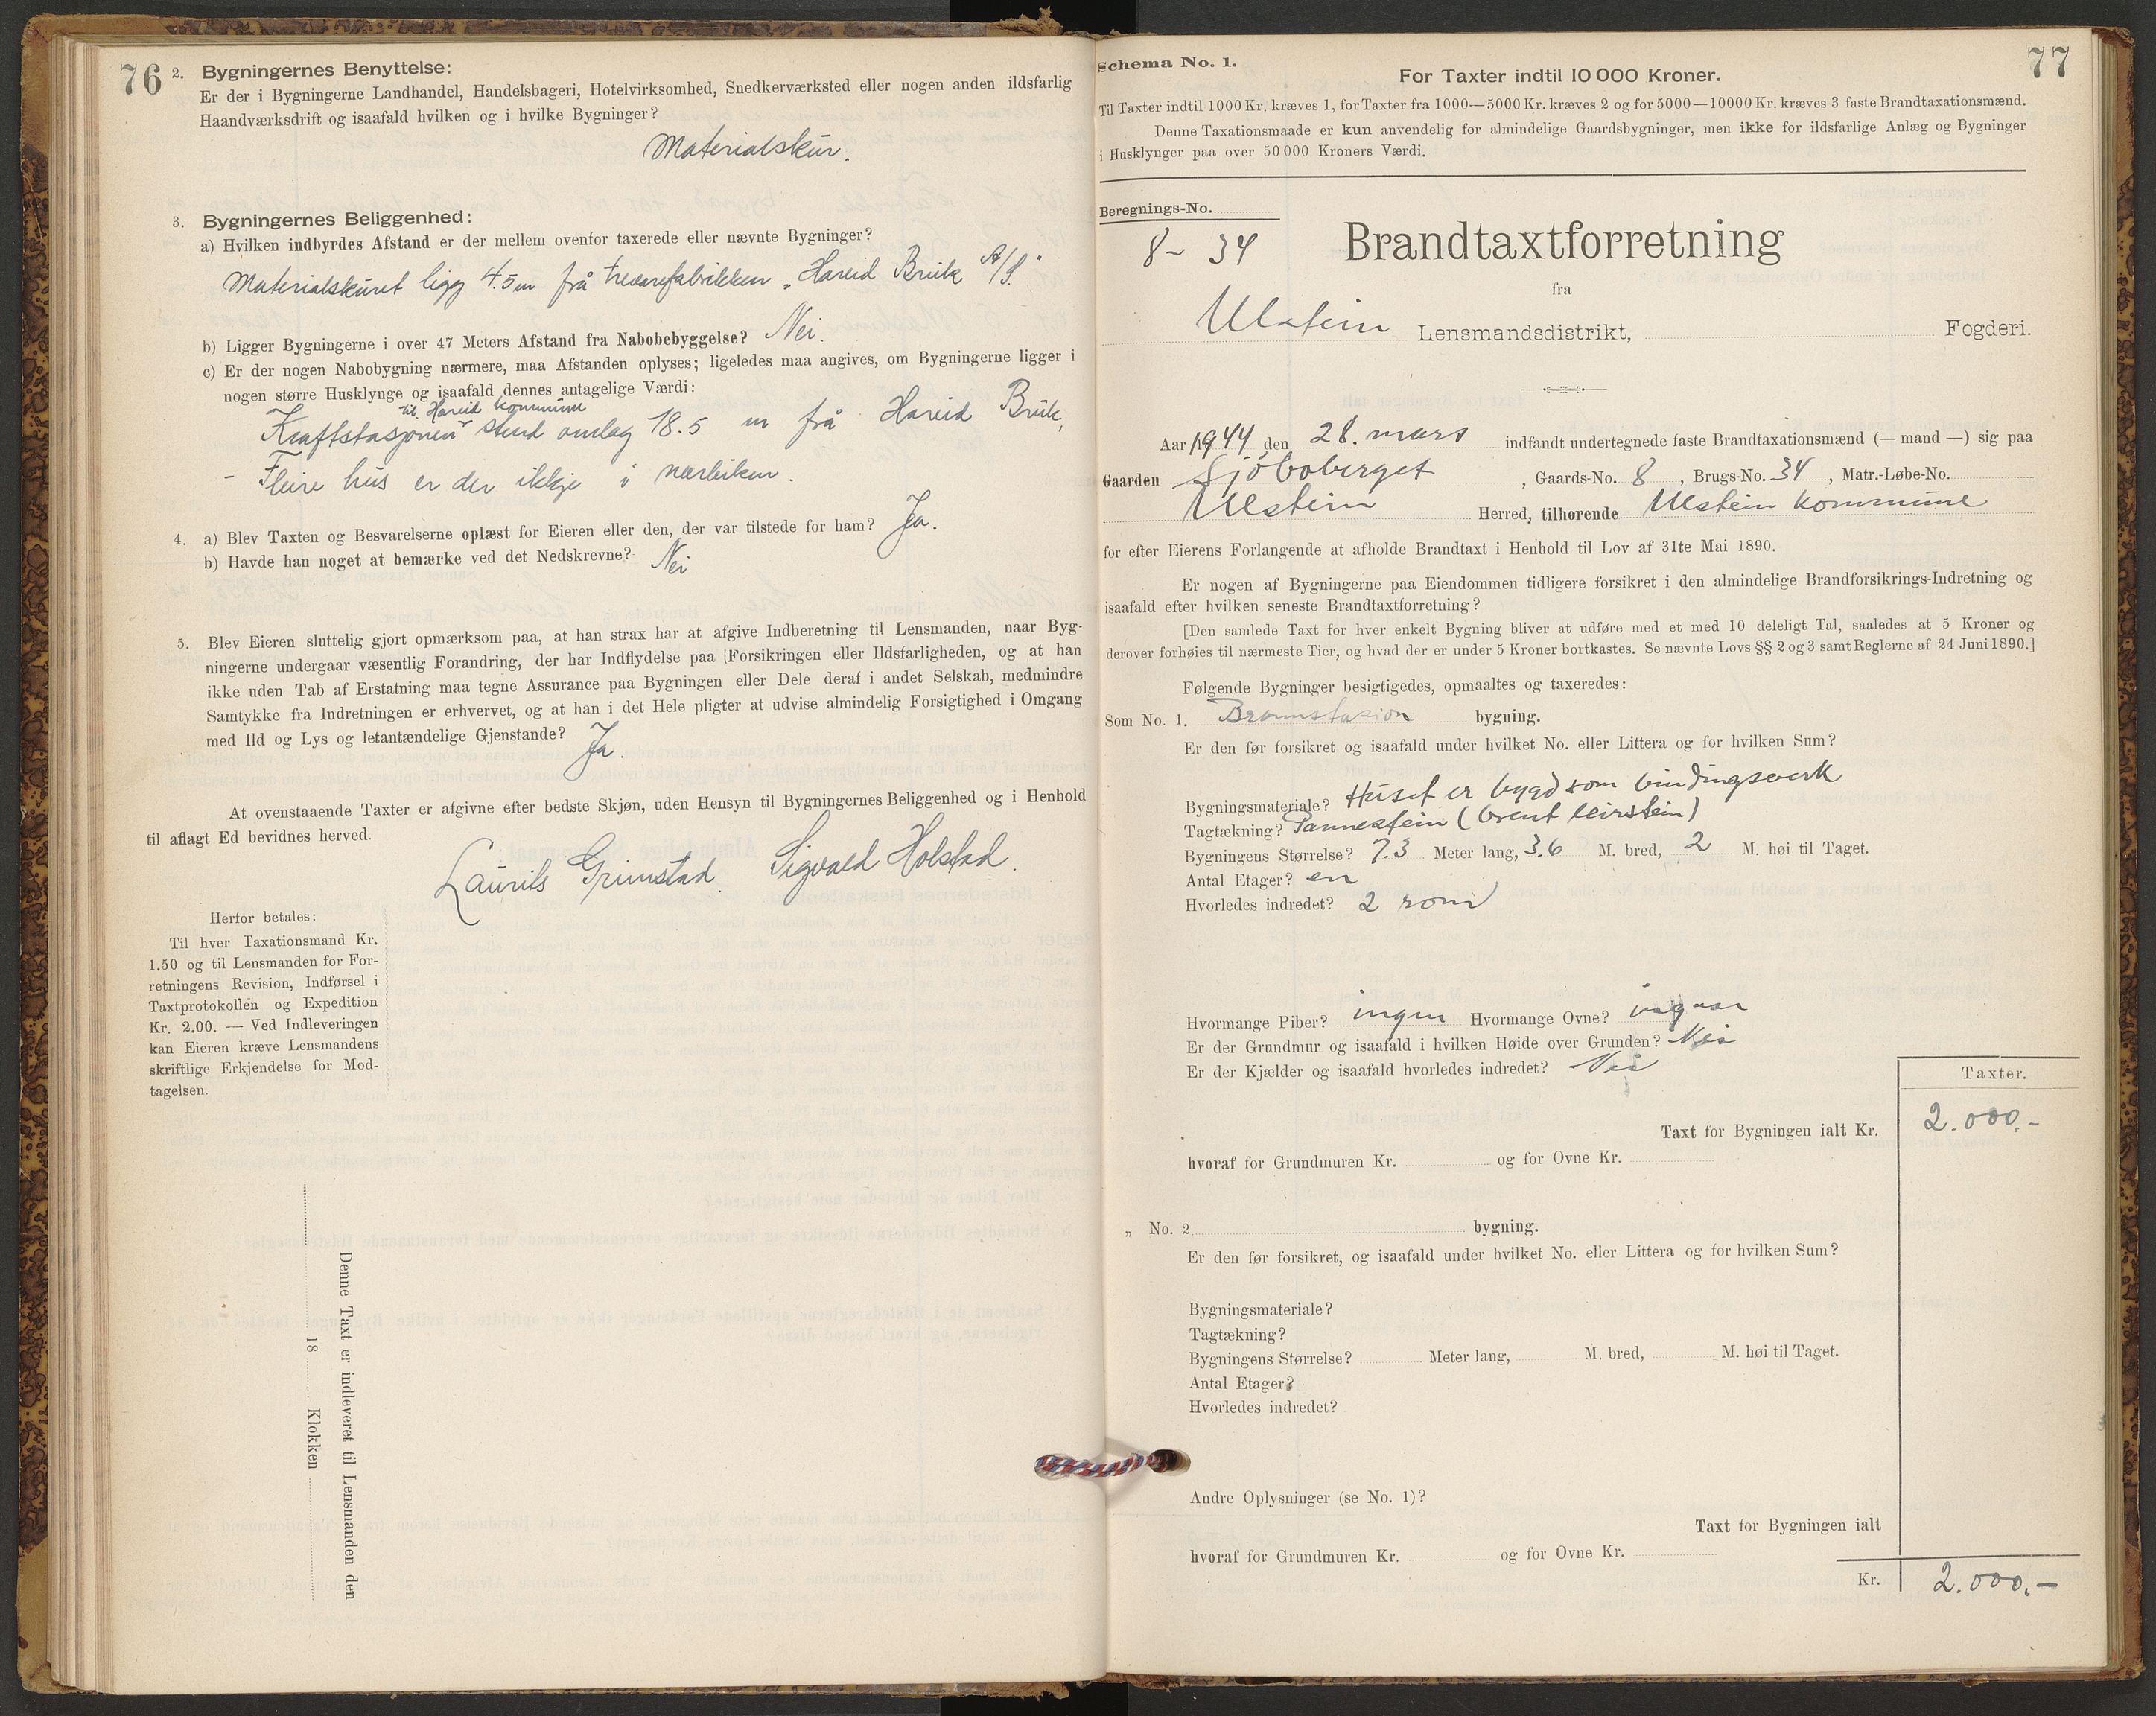 76
2. Bygningernes Benyttelse:
Er der i Bygningerne Landhandel, Handelsbageri, Hotelvirksomhed, Snedkerværksted eller nogen anden ildsfarlig
Haandværksdrift og isaafald hvilken og i hvilke Bygninger?
Materialskur.
3. Bygningernes Beliggenhed:
a) Hvilken indbyrdes Afstand er der mellem ovenfor taxerede eller nævnte Bygninger?
Materialskuret ligg 4.5 m frå trevarefabrikken „Hareid Bruk A/S."
b) Ligger Bygningerne i over 47 Meters Afstand fra Nabobebyggelse? Nei.
c) Er der nogen Nabobygning nærmere, maa Afstanden oplyses; ligeledes maa angives, om Bygningerne ligger i
nogen større Husklynge og isaafald dennes antagelige Værdi:
til Hareid kommune
Kraftstasjonen stend omlag 18.5 m frå Hareid Bruk,
- Fleire hus er der ikkje i nærleiken.
4. a) Blev Taxten og Besvarelserne oplæst for Eieren eller den, der var tilstede for ham? Ja.
b) Havde han noget at bemærke ved det Nedskrevne? Nei
5. Blev Eieren sluttelig gjort opmærksom paa, at han strax har at afgive Indberetning til Lensmanden, naar Byg-
ningerne undergaar væsentlig Forandring, der har Indflydelse paa (Forsikringen eller Ildsfarligheden, og at han
ikke uden Tab af Erstatning maa tegne Assurance paa Bygningen eller Dele deraf i andet Selskab, medmindre
Samtykke fra Indretningen er erhvervet, og at han i det Hele pligter at udvise almindelig Forsigtighed i Omgang
med Ild og Lys og letantændelige Gjenstande? Ja.
At ovenstaaende Taxter er afgivne efter bedste Skjøn, uden Hensyn til Bygningernes Beliggenhed og i Henhold
til aflagt Ed bevidnes herved.
Laurits Grimstad. Sigvald Holstad.
Herfor betales:
Til hver Taxationsmand Kr.
1.50 og til Lensmanden for For-
retningens Revision, Indførsel i
Taxtprotokollen og Expedition
Kr. 2.00. — Ved Indleveringen
kan Eieren kræve Lensmandens
skriftlige Erkjendelse for Mod-
tagelsen.
Denne Taxt er indleveret til Lensmanden den
18 Klokken
77
Schema No. 1.
For Taxter indtil 10 000 Kroner.
Til Taxter indtil 1000 Kr. kræves 1, for Taxter fra 1000—5000 Kr. kræves 2 og for 5000—10000 Kr. kræves 3 faste Brandtaxationsmænd.
Denne Taxationsmaade er kun anvendelig for almindelige Gaardsbygninger, men ikke for ildsfarlige Anlæg og Bygninger
i Husklynger paa over 50 000 Kroners Værdi.
Beregnings-No.
8 - 34
Brandtaxtforretning
fra
Ulstein Lensmandsdistrikt, Fogderi.
Aar 1944 den 28. mars indfandt undertegnede faste Brandtaxationsmænd (— mand —) sig paa
Gaarden Sjöboberget, Gaards-No. 8, Brugs-No. 34, Matr.-Løbe-No.
Ulstein Herred, tilhørende Ulstein kommune
for efter Eierens Forlangende at afholde Brandtaxt i Henhold til Lov af 31te Mai 1890.
Er nogen af Bygningerne paa Eiendommen tidligere forsikret i den almindelige Brandforsikrings-Indretning og
isaafald efter hvilken seneste Brandtaxtforretning?
[Den samlede Taxt for hver enkelt Bygning bliver at udføre med et med 10 deleligt Tal, saaledes at 5 Kroner og
derover forhøies til nærmeste Tier, og hvad der er under 5 Kroner bortkastes. Se nævnte Lovs §§ 2 og 3 samt Reglerne af 24 Juni 1890.]
Følgende Bygninger besigtigedes, opmaaltes og taxeredes:
Som No. 1. Brannstasion bygning.
Er den før forsikret og isaafald under hvilket No. eller Littera og for hvilken Sum?
Bygningsmateriale? Huset er bygd som bindingsverk
Tagtækning? Pannestein (brent leirstein)
Bygningens Størrelse? 7.3 Meter lang, 3.6 M. bred, 2 M. høi til Taget.
Antal Etager? en
Hvorledes indredet? 2 rom
Hvormange Piber? ingen Hvormange Ovne?
Er der Grundmur og isaafald i hvilken Høide over Grunden? Nei
Er der Kjælder og isaafald hvorledes indredet? Nei
Taxter.
Taxt for Bygningen ialt Kr. 2.000.-
hvoraf for Grundmuren Kr. og for Ovne Kr.
„ No. 2. bygning.
Er den før forsikret, og isaafald under hvilket No. eller Littera og for hvilken Sum?
Bygningsmateriale?
Tagtækning?
Bygningens Størrelse? Meter lang, M. bred, M. høi til Taget.
Antal Etager?
Hvorledes indredet?
Andre Oplysninger (se No. 1)?
Taxt for Bygningen ialt
hvoraf for Grundmuren Kr. og for Ovne Kr.
Kr. 2.000.-